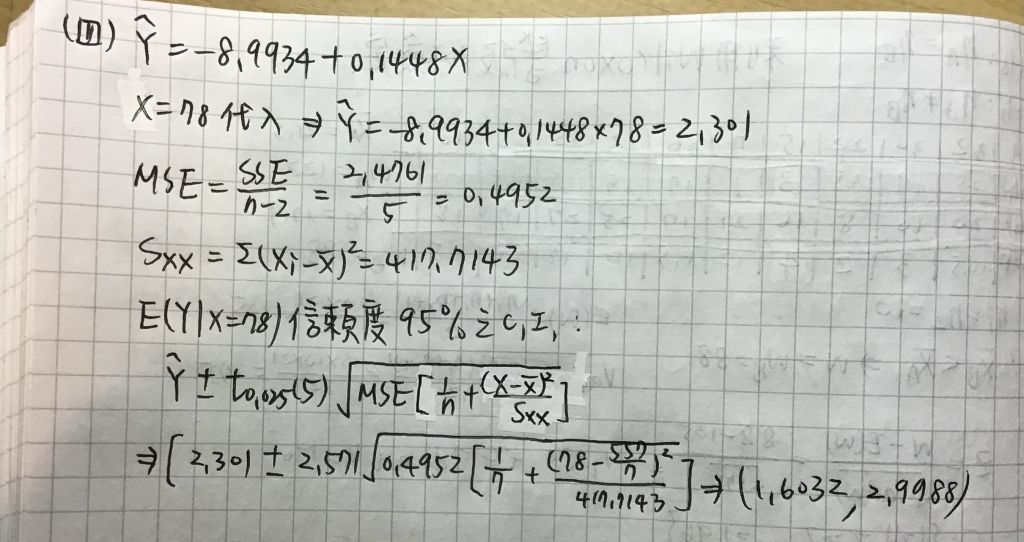 (四) Ŷ = -8.9934 + 0.1448X
X=78代入 ⇒ Ŷ = -8.9934+0.1448×78 = 2.301
MSE = SSE/(n-2) = 2.4761/5 = 0.4952
Sxx = Σ(Xi-X̄)² = 417.7143
E(Y|X=78)信賴度95%之C.I.:
Ŷ ± t0.025(5) √MSE[1/n + (X-X̄)²/Sxx]
⇒ [2.301 ± 2.571 √0.4952[1/7 + (78-557/7)²/417.7143] ⇒ (1.6032, 2.9988)